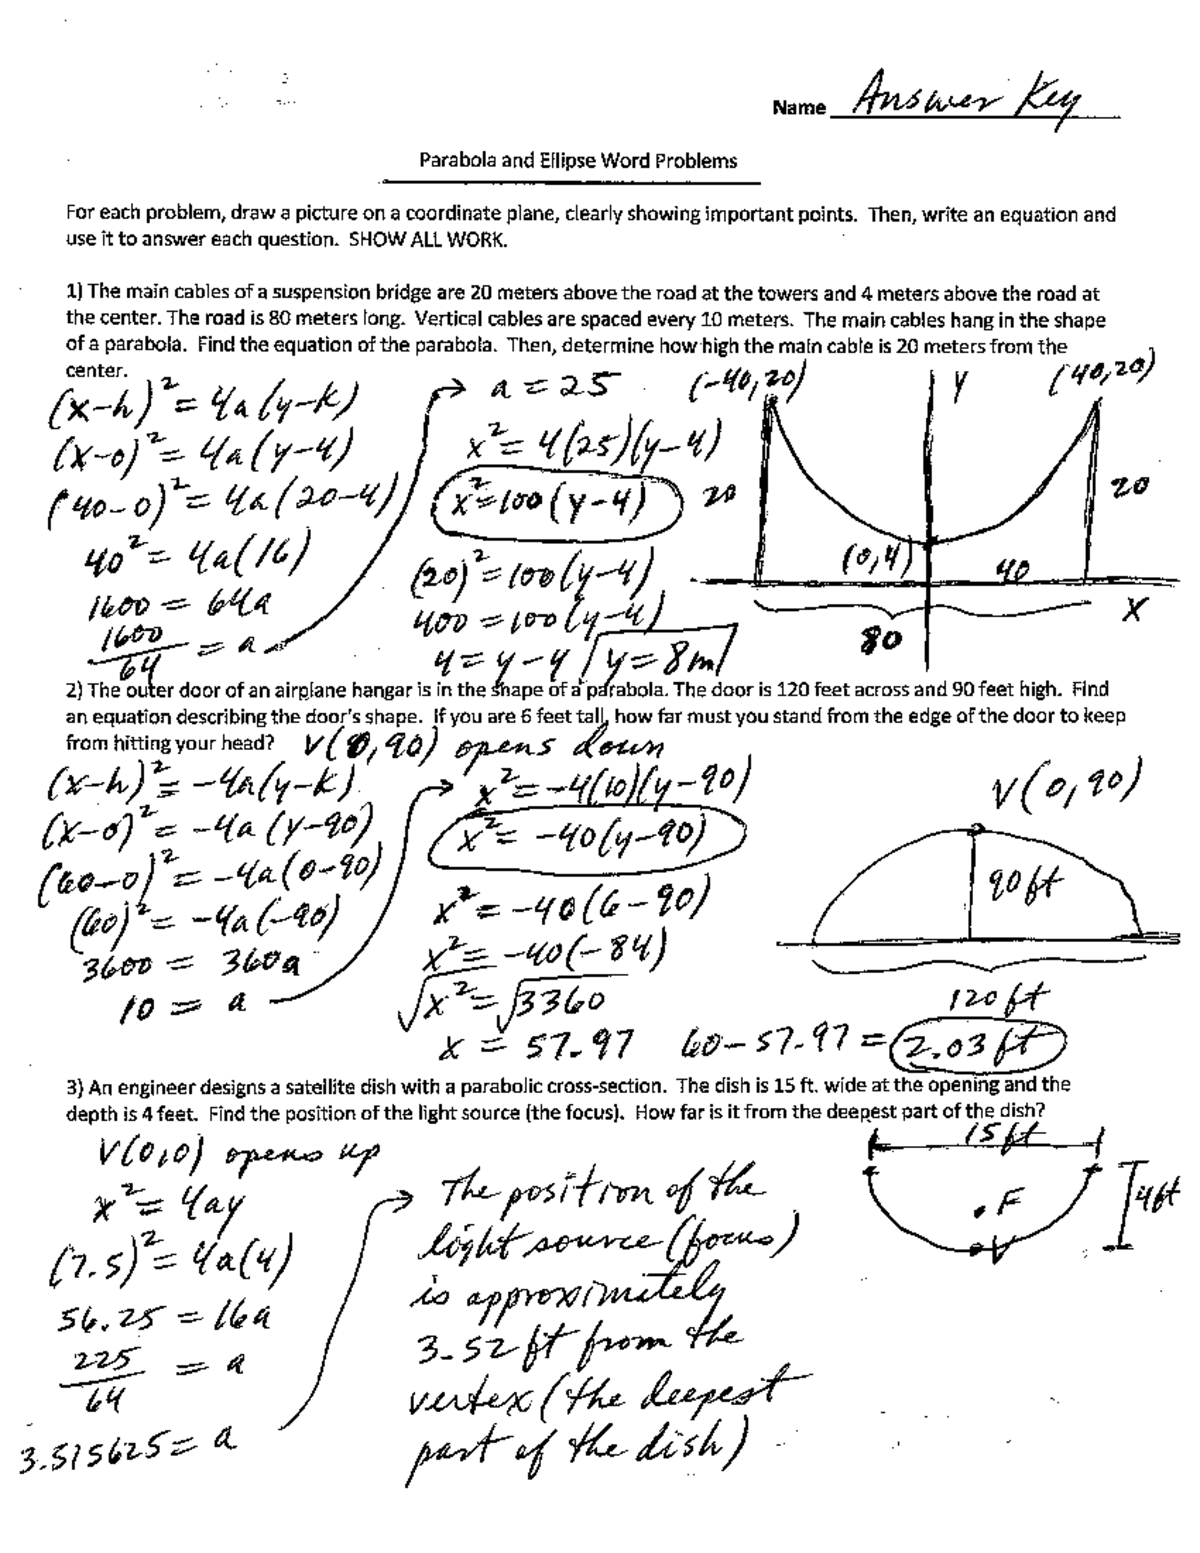 Name Answer Key
Parabola and Ellipse Word Problems
For each problem, draw a picture on a coordinate plane, clearly showing important points. Then, write an equation and
use it to answer each question. SHOW ALL WORK.
1) The main cables of a suspension bridge are 20 meters above the road at the towers and 4 meters above the road at
the center. The road is 80 meters long. Vertical cables are spaced every 10 meters. The main cables hang in the shape
of a parabola. Find the equation of the parabola. Then, determine how high the main cable is 20 meters from the
center.
(x-h)² = 4a(y-k)
(x-0)² = 4a(y-4)
(40-0)² = 4a(20-4)
40² = 4a(16)
1600 = 64a
1600/64 = a
a = 25
x² = 4(25)(y-4)
x² = 100(y-4)
(20)² = 100(y-4)
400 = 100(y-4)
4 = y-4 y = 8m
(-40,20) Y (40,20)
20 20
(0,4) 40
X
80
2) The outer door of an airplane hangar is in the shape of a parabola. The door is 120 feet across and 90 feet high. Find
an equation describing the door's shape. If you are 6 feet tall, how far must you stand from the edge of the door to keep
from hitting your head? V(0,90) opens down
(x-h)² = -4a(y-k)
(x-0)² = -4a(y-90)
(60-0)² = -4a(0-90)
(60)² = -4a(-90)
3600 = 360a
10 = a
x² = -4(10)(y-90)
x² = -40(y-90)
x² = -40(6-90)
x² = -40(-84)
√x² = √3360
x = 57.97 60-57.97 = 2.03 ft
V(0,90)
90ft
120ft
3) An engineer designs a satellite dish with a parabolic cross-section. The dish is 15 ft. wide at the opening and the
depth is 4 feet. Find the position of the light source (the focus). How far is it from the deepest part of the dish?
V(0,0) opens up
x² = 4ay
(7.5)² = 4a(4)
56.25 = 16a
225/64 = a
3.515625 = a
The position of the
light source (focus)
is approximately
3.52 ft from the
vertex (the deepest
part of the dish)
15ft
F
4ft
V